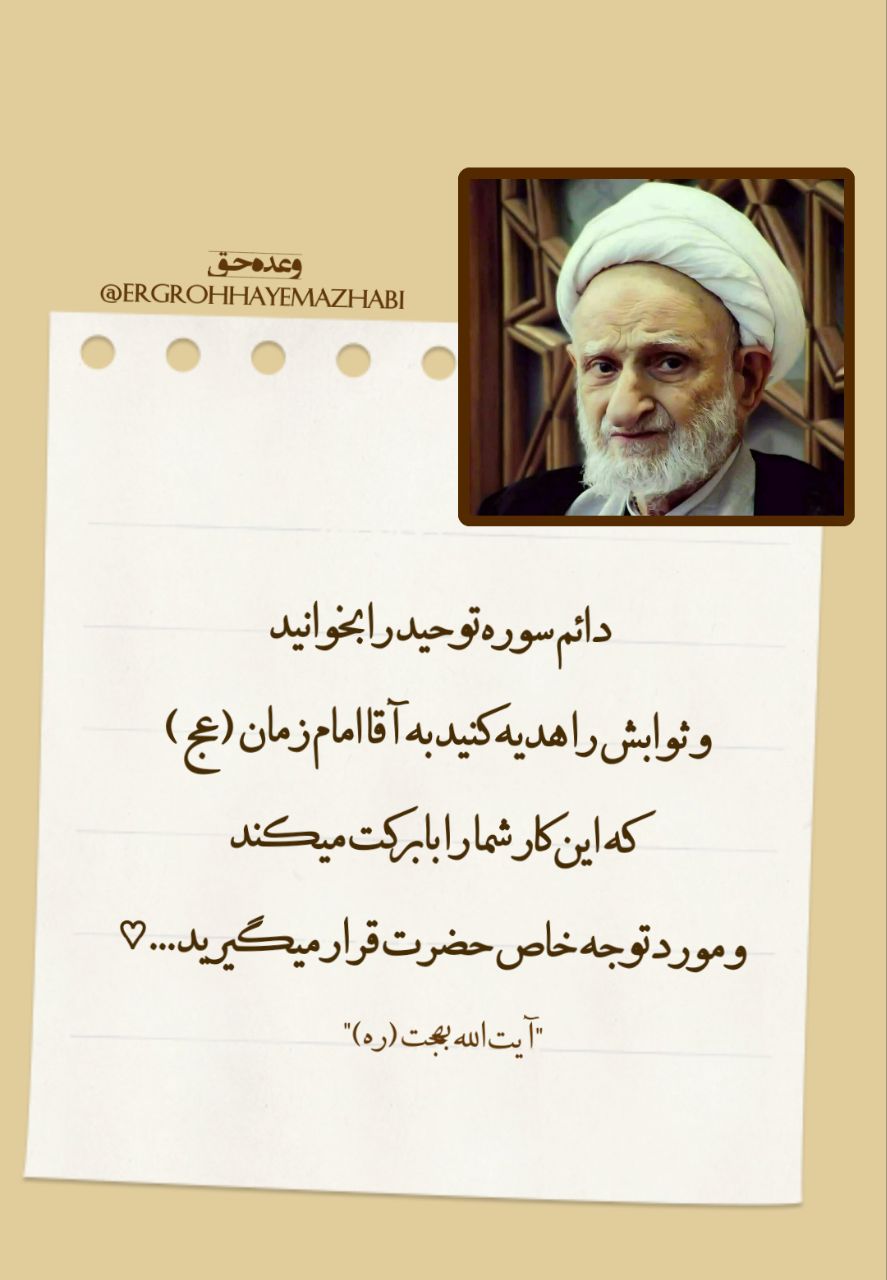 وعده حق
@ERGROHHAYEMAZHABI
دائم سوره توحید را بخوانید
و ثوابش را هدیه کنید به آقا امام زمان (عج)
که این کار شما را با برکت میکند
و مورد توجه خاص حضرت قرار میگیرید...♡
"آیت الله بهجت (ره)"